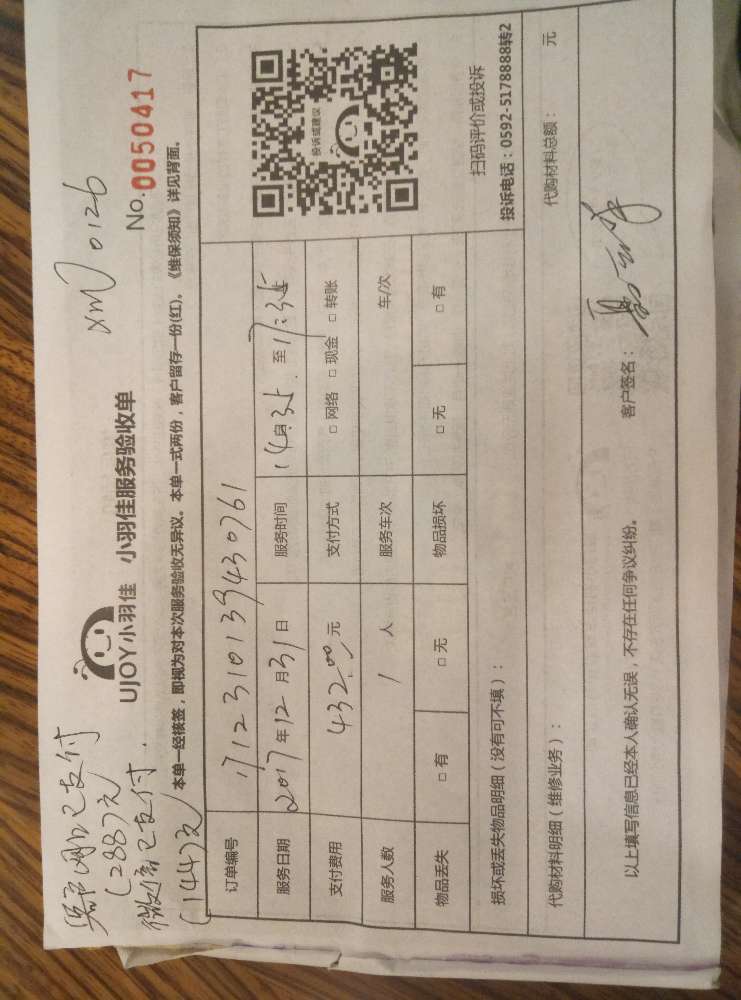 已支付
(288)元
微信已支付.
(144)元
xm 0126
UJOY小羽佳 小羽佳服务验收单
No.0050417
本单一经核签，即视为对本次服务验收无异议。本单一式两份，客户留存一份(红)。《维保须知》详见背面。
订单编号 1712310139430761
服务日期 2017年12月31日 服务时间 14:35 至 17:35
支付费用 432.00元 支付方式 □ 网络 □ 现金 □ 转账
服务人数 1 人 服务车次 车/次
物品丢失 □ 有 □ 无 物品损坏 □ 无 □ 有
投诉或建议
扫码评价或投诉
投诉电话：0592-5178888转2
损坏或丢失物品明细（没有可不填）：
代购材料明细（维修业务）： 代购材料总额： 元
以上填写信息已经本人确认无误，不存在任何争议纠纷。
客户签名：